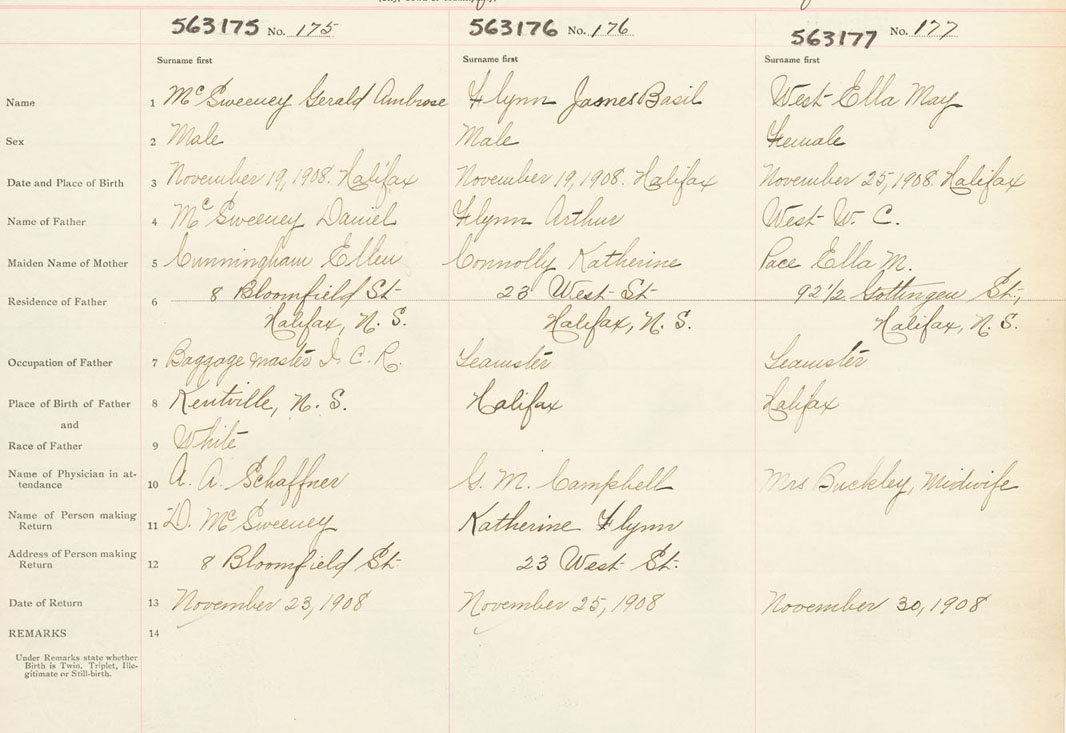 563175 No. 175 563176 No. 176 563177 No. 177
Surname first Surname first Surname first
Name 1 McSweeney Gerald Ambrose Flynn James Basil West Ella May
Sex 2 Male Male Female
Date and Place of Birth 3 November 19, 1908. Halifax November 19, 1908. Halifax November 25, 1908. Halifax
Name of Father 4 McSweeney Daniel Flynn Arthur West W. C.
Maiden Name of Mother 5 Cunningham Ellen Connolly Katherine Pace Ella M.
Residence of Father 6 8 Bloomfield St 23 West St 92 1/2 Gottingen St.,
Halifax, N. S. Halifax, N. S. Halifax, N. S.
Occupation of Father 7 Baggage master I. C. R. Teamster Teamster
Place of Birth of Father 8 Kentville, N. S. Halifax Halifax
and
Race of Father 9 White
Name of Physician in at-
tendance 10 A. A. Schaffner G. M. Campbell Mrs Buckley, Midwife
Name of Person making
Return 11 D. McSweeney Katherine Flynn
Address of Person making
Return 12 8 Bloomfield St 23 West St.
Date of Return 13 November 23, 1908 November 25, 1908 November 30, 1908
REMARKS 14
Under Remarks state whether
Birth is Twin, Triplet, Ille-
gitimate or Still-birth.